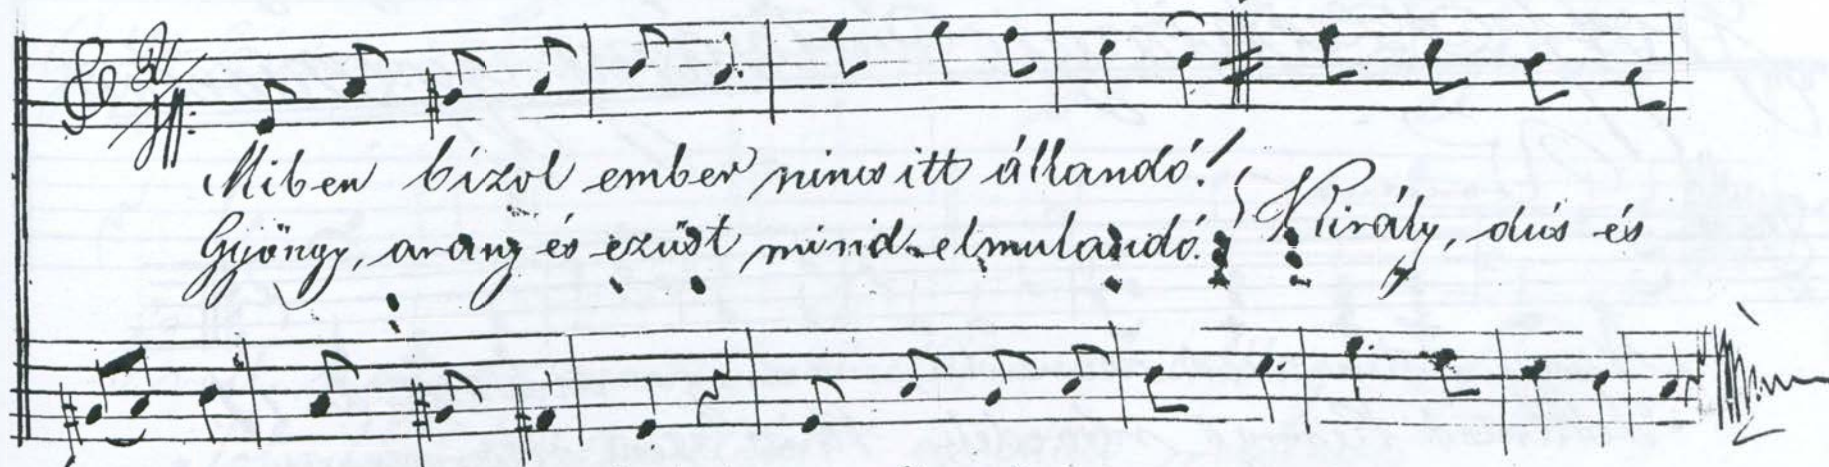 Miben bízol ember nincs itt állandó!
Gyöngy, arany és ezüst mind elmulandó! Király, dús és